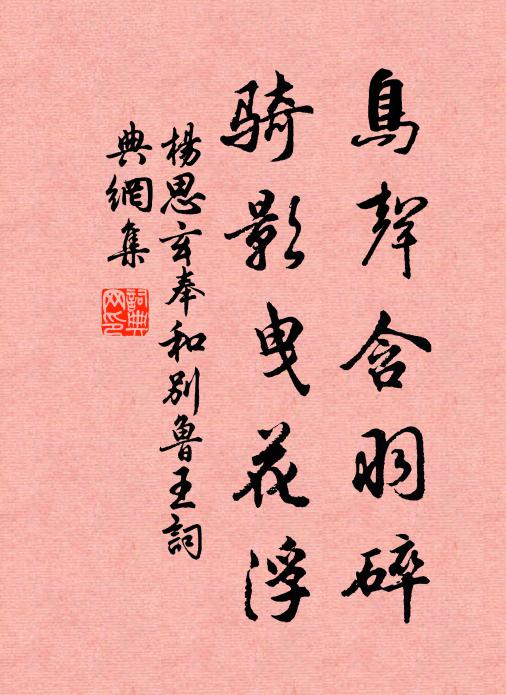 鳥聲含羽碎
騎影曳花浮
楊思玄奉和別魯王詞
典網集
詞典
网印